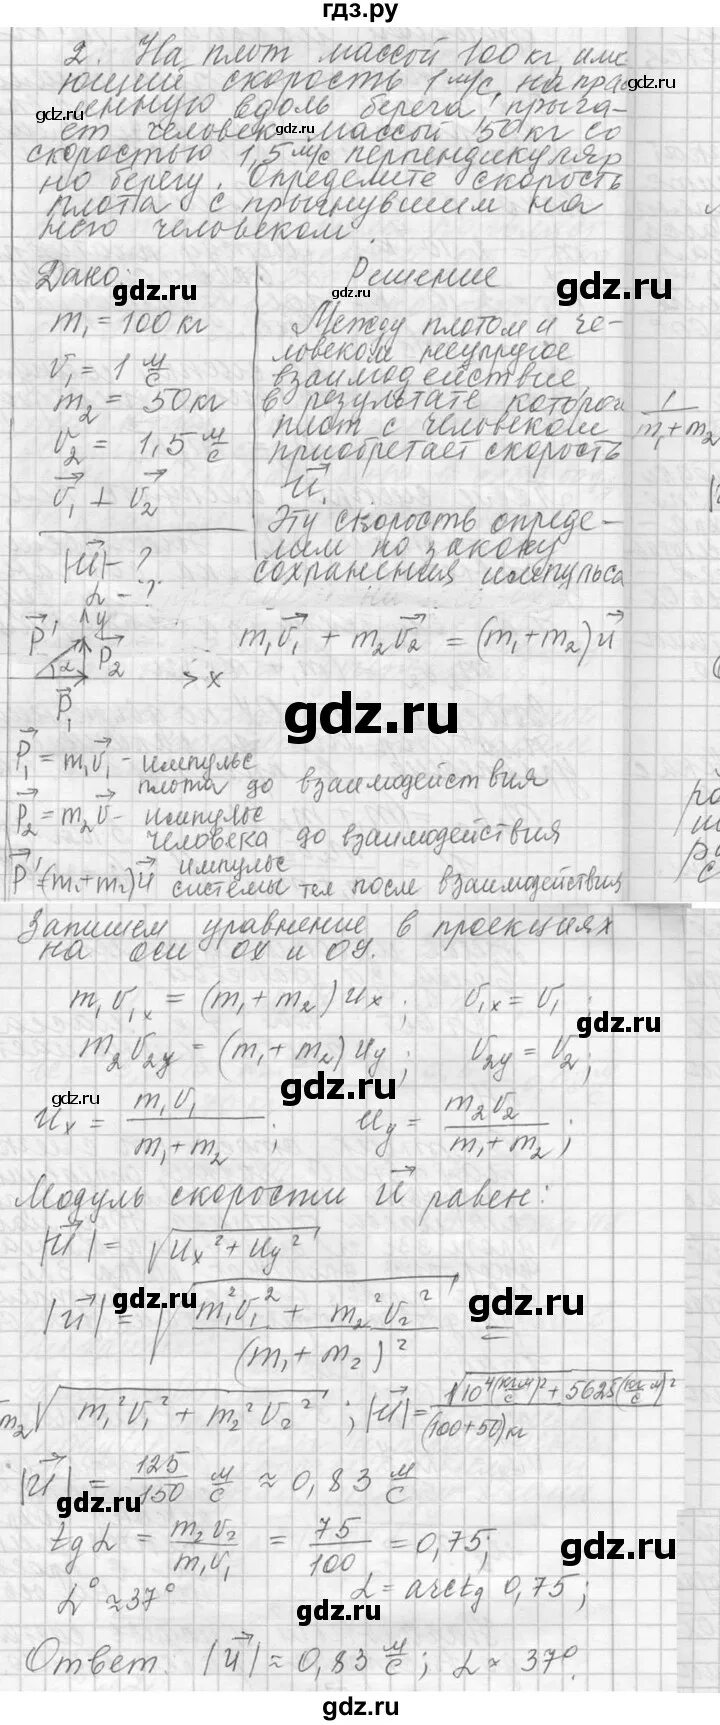 гдз.ру
2. На плот массой 100 кг, име
ющий скорость 1 м/с, направ
ленную вдоль берега прыга-
ет человек массой 50 кг со
скоростью 1,5 м/с перпендикуляр
но берегу. Определите скорость
плота с прыгнувшим на
него человеком.
Дано:
m₁ = 100 кг
v₁ = 1 м/с
m₂ = 50 кг
v₂ = 1,5 м/с
v⃗₁ ⊥ v⃗₂
|u⃗| - ?
α - ?
Решение
Между плотом и че-
ловеком неупругое
взаимодействие
в результате которого
плот с человеком
приобретает скорость
u⃗.
Эту скорость опреде-
лим по закону
сохранения импульса
1/(m₁+m₂)
p⃗' y
α p⃗₂
x
p⃗₁
m₁v⃗₁ + m₂v⃗₂ = (m₁+m₂)u⃗
gdz.ru
p⃗₁ = m₁v⃗₁ - импульс
плота до взаимодействия
p⃗₂ = m₂v⃗ - импульс
человека до взаимодействия
p⃗' = (m₁+m₂)u⃗ импульс
системы тел после взаимодействия
Запишем уравнение в проекциях
на оси OX и OY.
m₁v₁ₓ = (m₁+m₂)uₓ; v₁ₓ = v₁;
m₂v₂y = (m₁+m₂)uy; v₂y = v₂;
uₓ = m₁v₁/(m₁+m₂); uy = m₂v₂/(m₁+m₂);
Модуль скорости u⃗ равен:
|u⃗| = √(uₓ² + uy²)
|u⃗| = √((m₁²v₁² + m₂²v₂²)/(m₁+m₂)²) =
m₂ √(m₁²v₁² + m₂²v₂²); |u⃗| = √(10⁴(кг м/с)² + 5625(кг м/с)²)/(100+50)кг
|u⃗| = 125/150 м/с ≈ 0,83 м/с
tg α = m₂v₂/m₁v₁ = 75/100 = 0,75;
α° ≈ 37° α = arctg 0,75;
Ответ: |u⃗| ≈ 0,83 м/с; α ≈ 37°.
gdz.ru